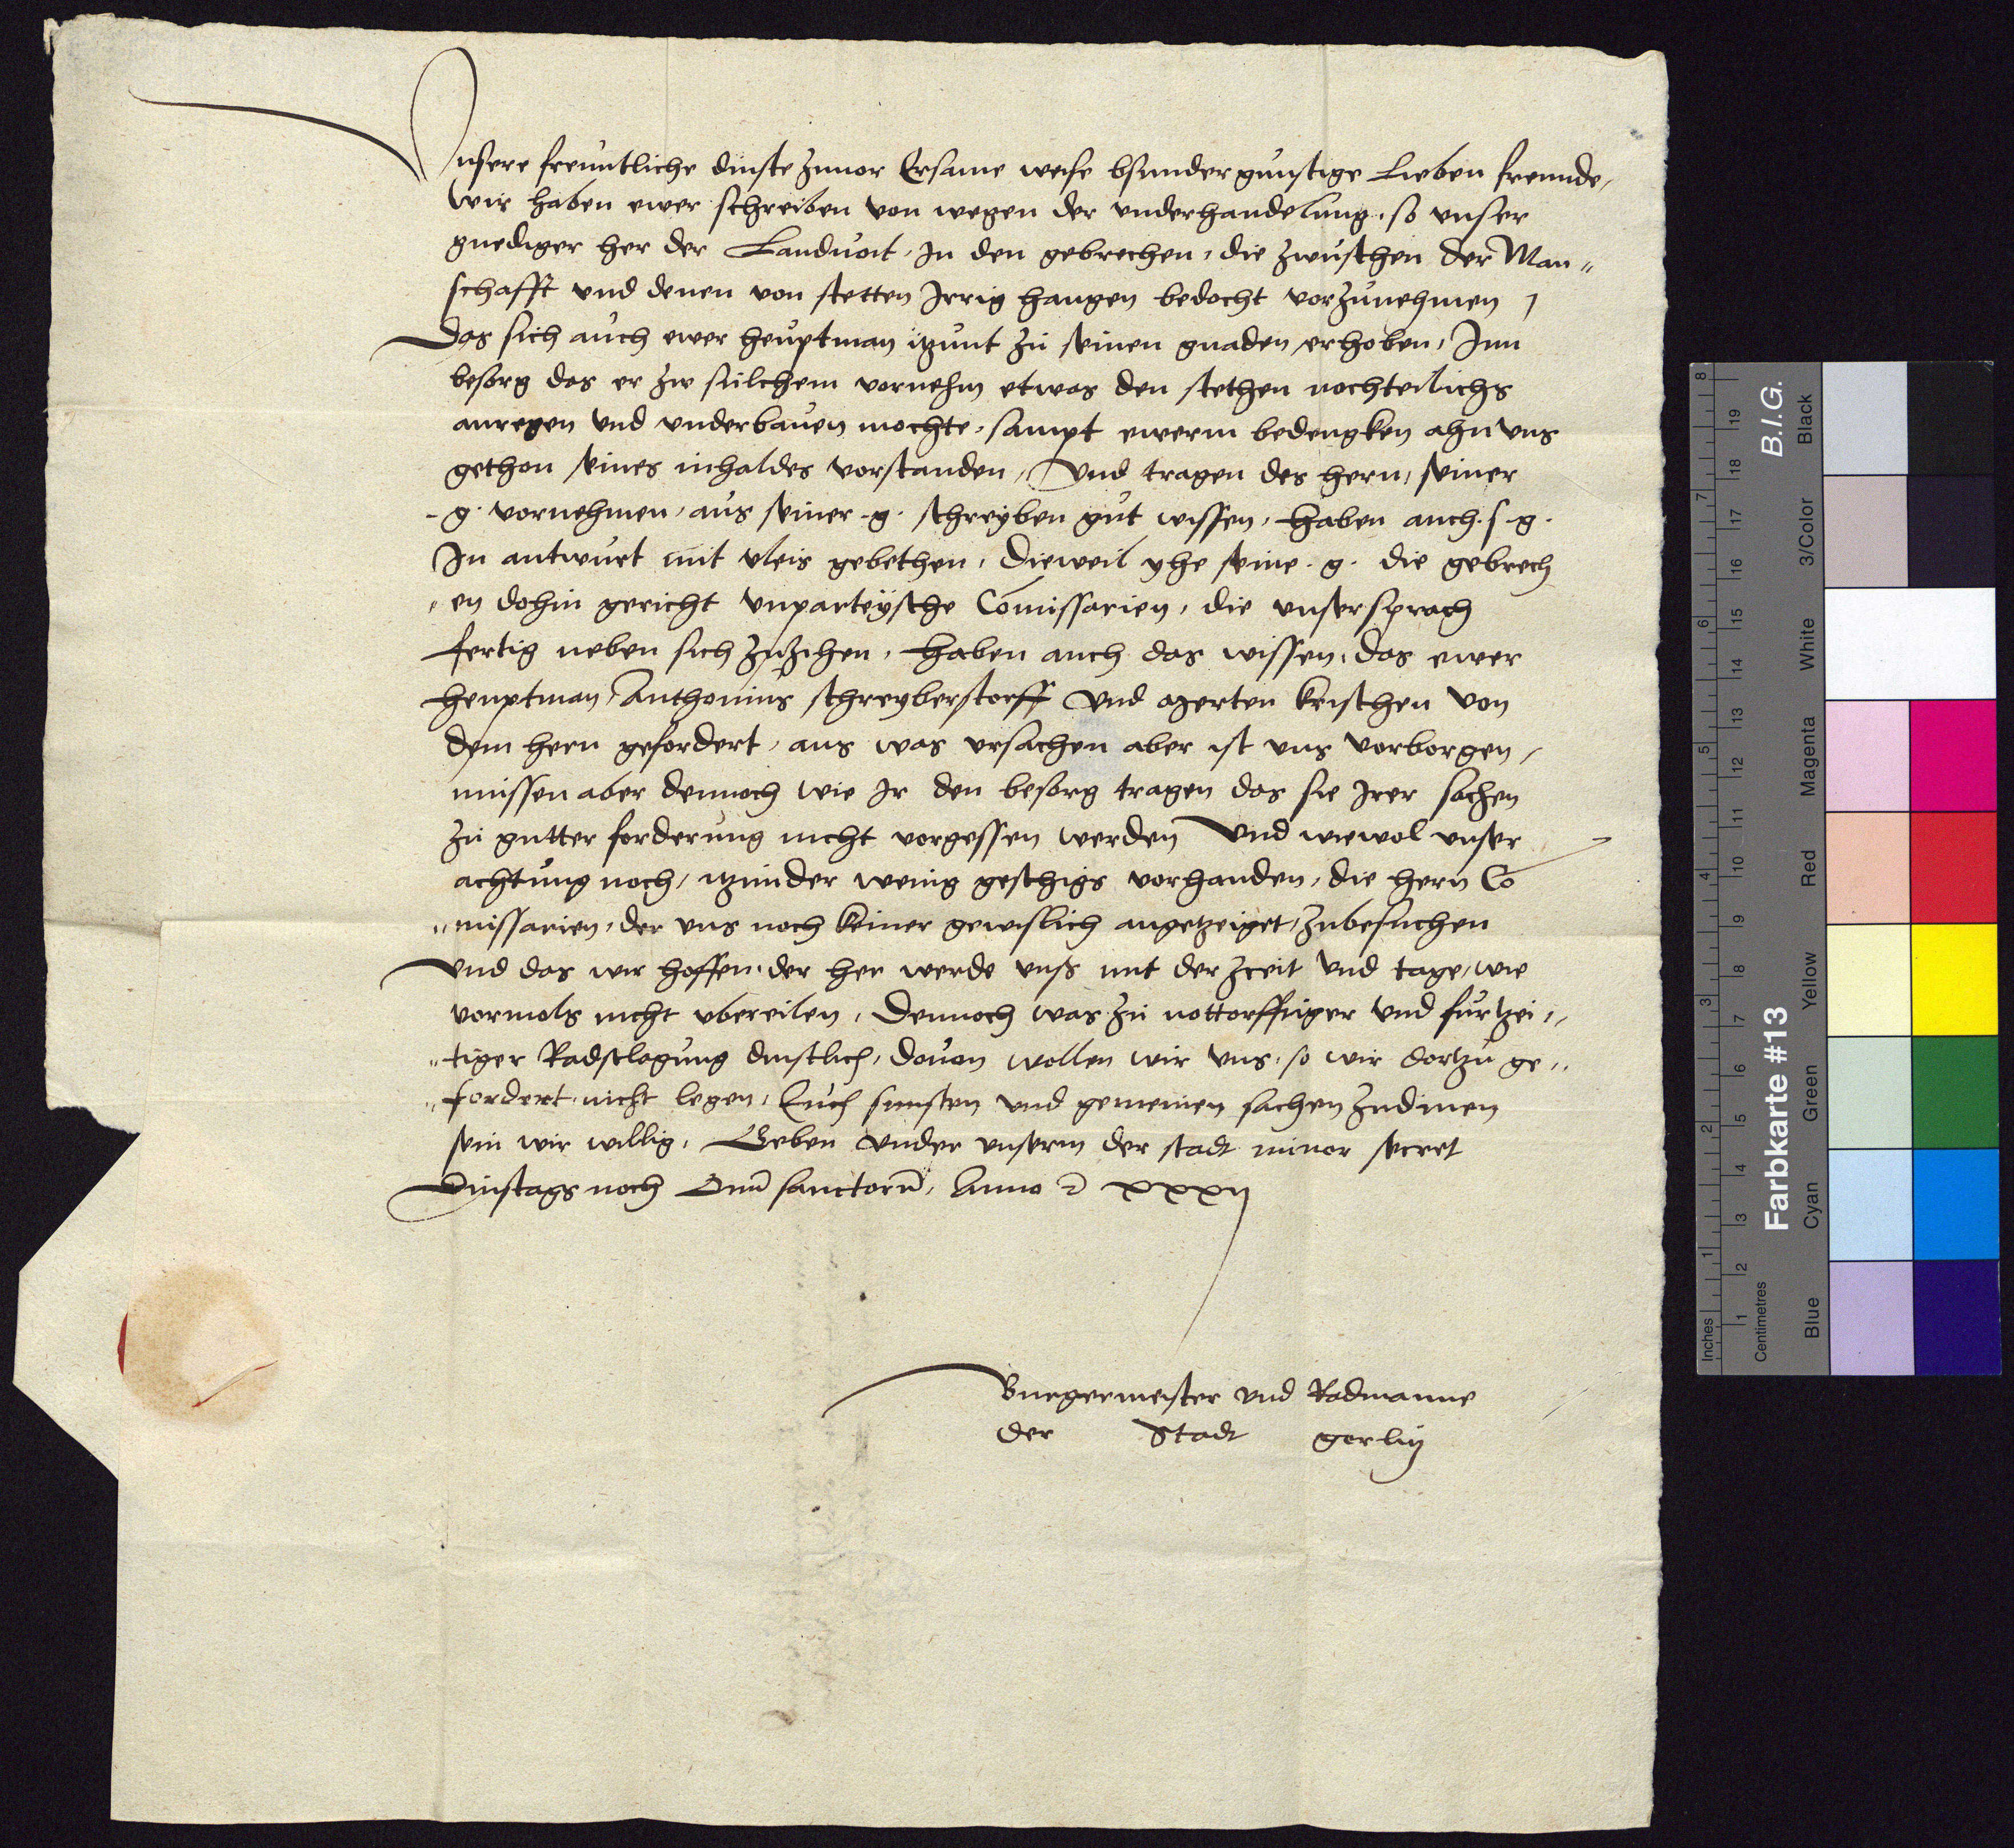 Vnsere freuntliche dinste zuuor Ersame weise bsunder gunstige Lieben freunde,
Wir haben ewer schreiben von wegen der vnderhandelung, so vnser
gnediger her der Landuoit, In den gebrechen, die zwuschen der Man"
schafft vnd denen von stetten Irrig hangen bedocht vorzunehmen /
Das sich auch ewer heuptman itzunt zu seinen gnaden erhoben, Inn
besorg das er zw sulchem vornehm etwas den stethen nochteilichs
anregen vnd vnderbauen mochte, sampt ewerm bedengken ahn vns
gethon seines inhaldes vorstanden, Vnd tragen des hern, seiner
.g. vornehmen, aus seiner .g. schreyben gut wissen, haben auch .s.g.
In antwurt mit vleis gebethen, dieweil yhe seine .g. die gebrech
"en dohin gericht vnparteysche Comissarien, die vnser sprach
fertig neben sich zuzihen, haben auch das wissen, das ewer
heuptman Anthonius schreyberstorff vnd kischen von
dem hern gefordert, aus was vrsachen aber ist vns vorborgen,
mussen aber dennoch wie Ir den besorg tragen das sie Irer sachen
zu gutter forderung nicht vorgessen werden Vnd wiewol vnser
achtung noch, itzunder wenig geschigs vorhanden, die hern Co
"missarien, der vns noch keiner gewislich angetzeiget, zubesuchen
Vnd das wir hoffen, der her werde vnß mit der zceit vnd tage, wie
vormols nicht vbereilen, Dennoch was zu nottorfftiger vnd furtzei"
"tiger Radslagung dinstlich, douon wollen wir vns, so wir dortzu ge"
"fordert, nicht legen, Euch sunsten vnd gemeinen sachen zudinen
sein wir willig, Geben vnder vnserm der stadt minor secret
Dinstags noch Omnium sanctorum, Anno &c xxxij
Burgermeister vnd Radmanne
der Stadt gorlitz
Inches
Centimetres
1 2 3 4 5 6 7 8
1 2 3 4 5 6 7 8 9 10 11 12 13 14 15 16 17 18 19
Farbkarte #13
B.I.G.
Blue Cyan Green Yellow Red Magenta White 3/Color Black